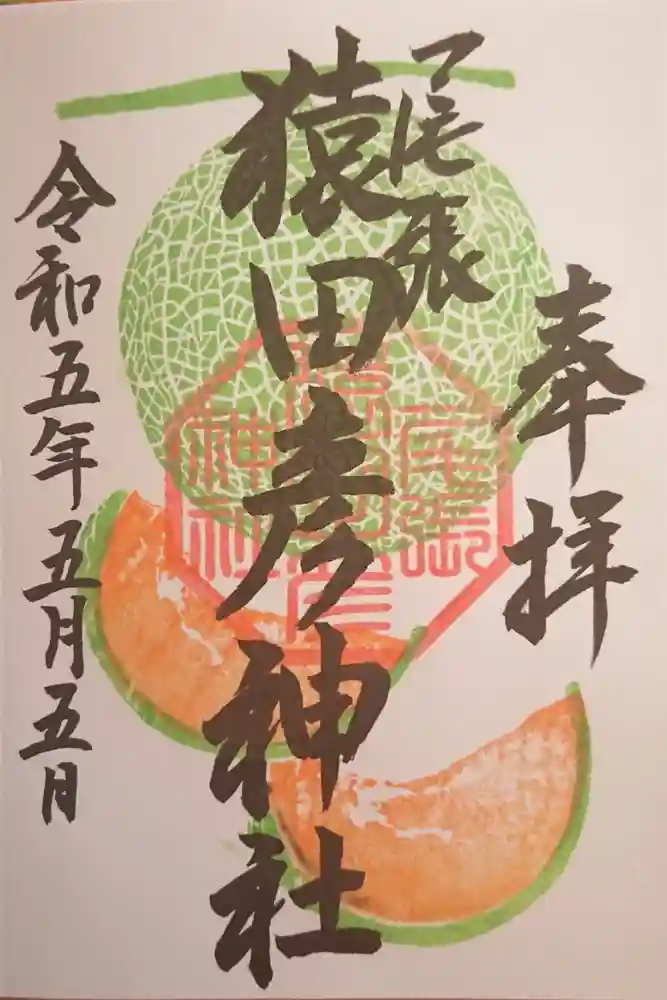 奉拝
尾張
猿田彦神社
令和五年五月五日